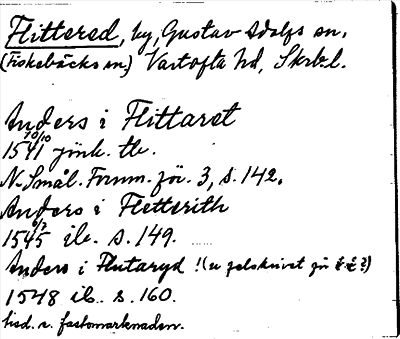 Flittered, by, Gustav Adolfs sn,
(Fiskebäcks sn.) Vartofta hd, Skbl.
Anders i Flittaret
10/10
1541 jönk. tb.
N. Smål. Fornm. för. 3, s. 142.
Anders i Fletterith
1545 ib. s. 149.
Anders i Flutaryd ! (u felskrivet för
1548 ib. s. 160.
tisd. e. fastomarknaden.